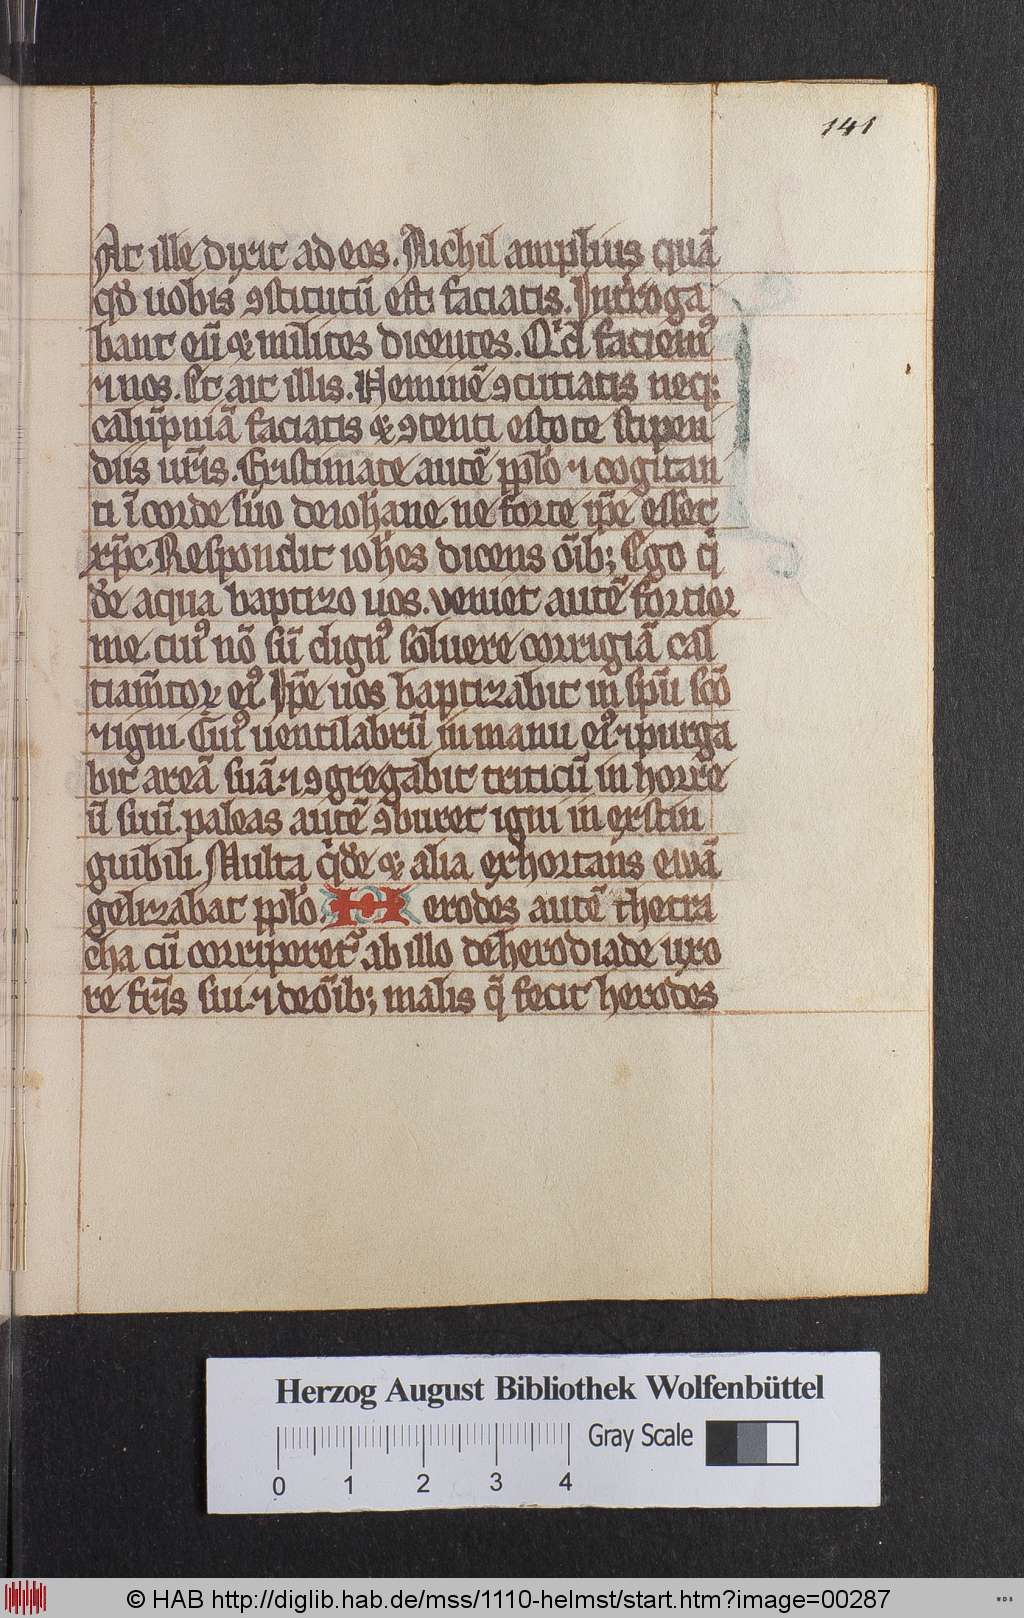 141
At ille dixit ad eos. Nichil amplius quā
qd̓ uobis ꝯstitutū est faciatis. Int̓roga
bant eū & milites dicentes. Qⁱd faciemꝰ
⁊ nos. Et ait illis. Neminē ꝯcutiatis neqꝫ
calūpniā faciatis & ꝯtenti estote stipen
diis ur̄is. Existimate autē pp̄lo ⁊ cogitan
ti ī corde suo de iohane ne forte ip̄e esset
xp̄c. Respondit ioh̄es dicens oībꝫ Ego qⁱ
dē aqua baptizo uos. veniet autē fortior
me cuiꝰ nō sū dignꝰ soluere corrigiā cal
tiam̄toꝝ eiꝰ. Ip̄e uos baptizabit in sp̄u scō
⁊ igni. Cuiꝰ uentilabrū in manu eiꝰ ⁊ purga
bit areā suā. ⁊ ꝯgregabit triticū in horre
ū suū. paleas autē ꝯburet igni in extin
guibili. Multa qⁱdē & alia exhortans euuā
gelizabat pp̄lo. Herodes autē thetra
cha cū corriperet᷑ ab illo de herodiade uxo
re fr̄is sui. ⁊ de oībꝫ malis q̄ fecit herodes
Herzog August Bibliothek Wolfenbüttel
Gray Scale
0 1 2 3 4
© HAB http://diglib.hab.de/mss/1110-helmst/start.htm?image=00287